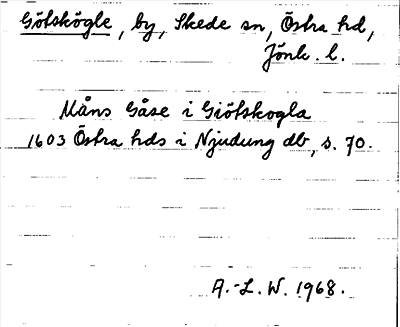 Götskögle, by, Skede sn, Östra hd,
Jönk. l.
Måns Gåse i Giötskogla
1603 Östra hds i Njudung db, s. 70.
A.-L. W. 1968.